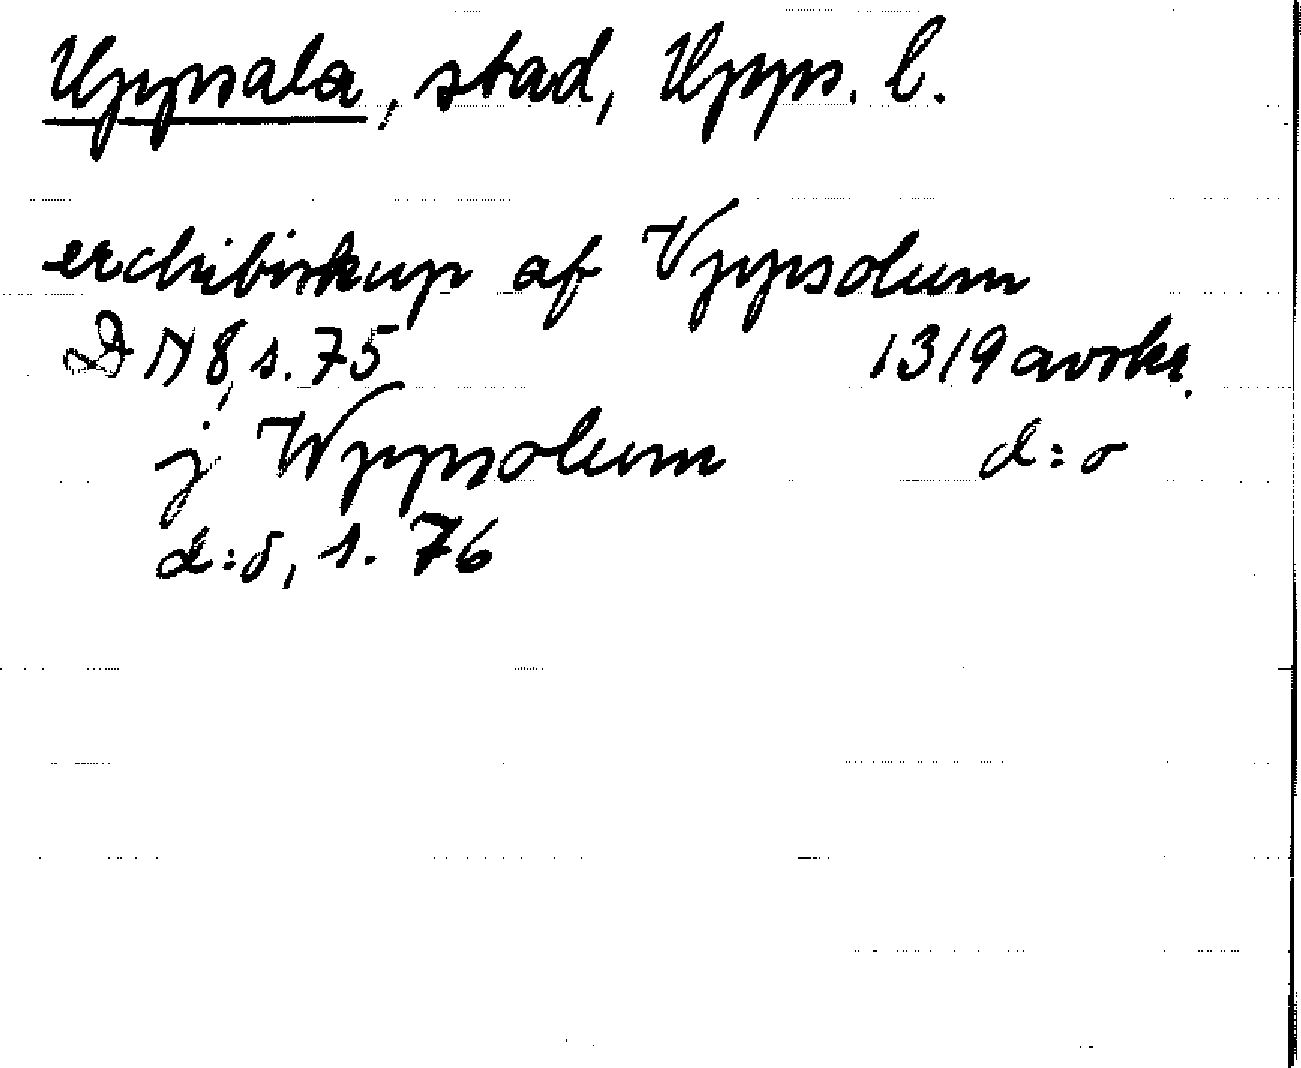 Uppsala, stad, Upps. l.
erchibiskup af Vppsolum
DN 8, s. 75 1319 avskr.
j Wppsolum d:o
d:o, s. 76